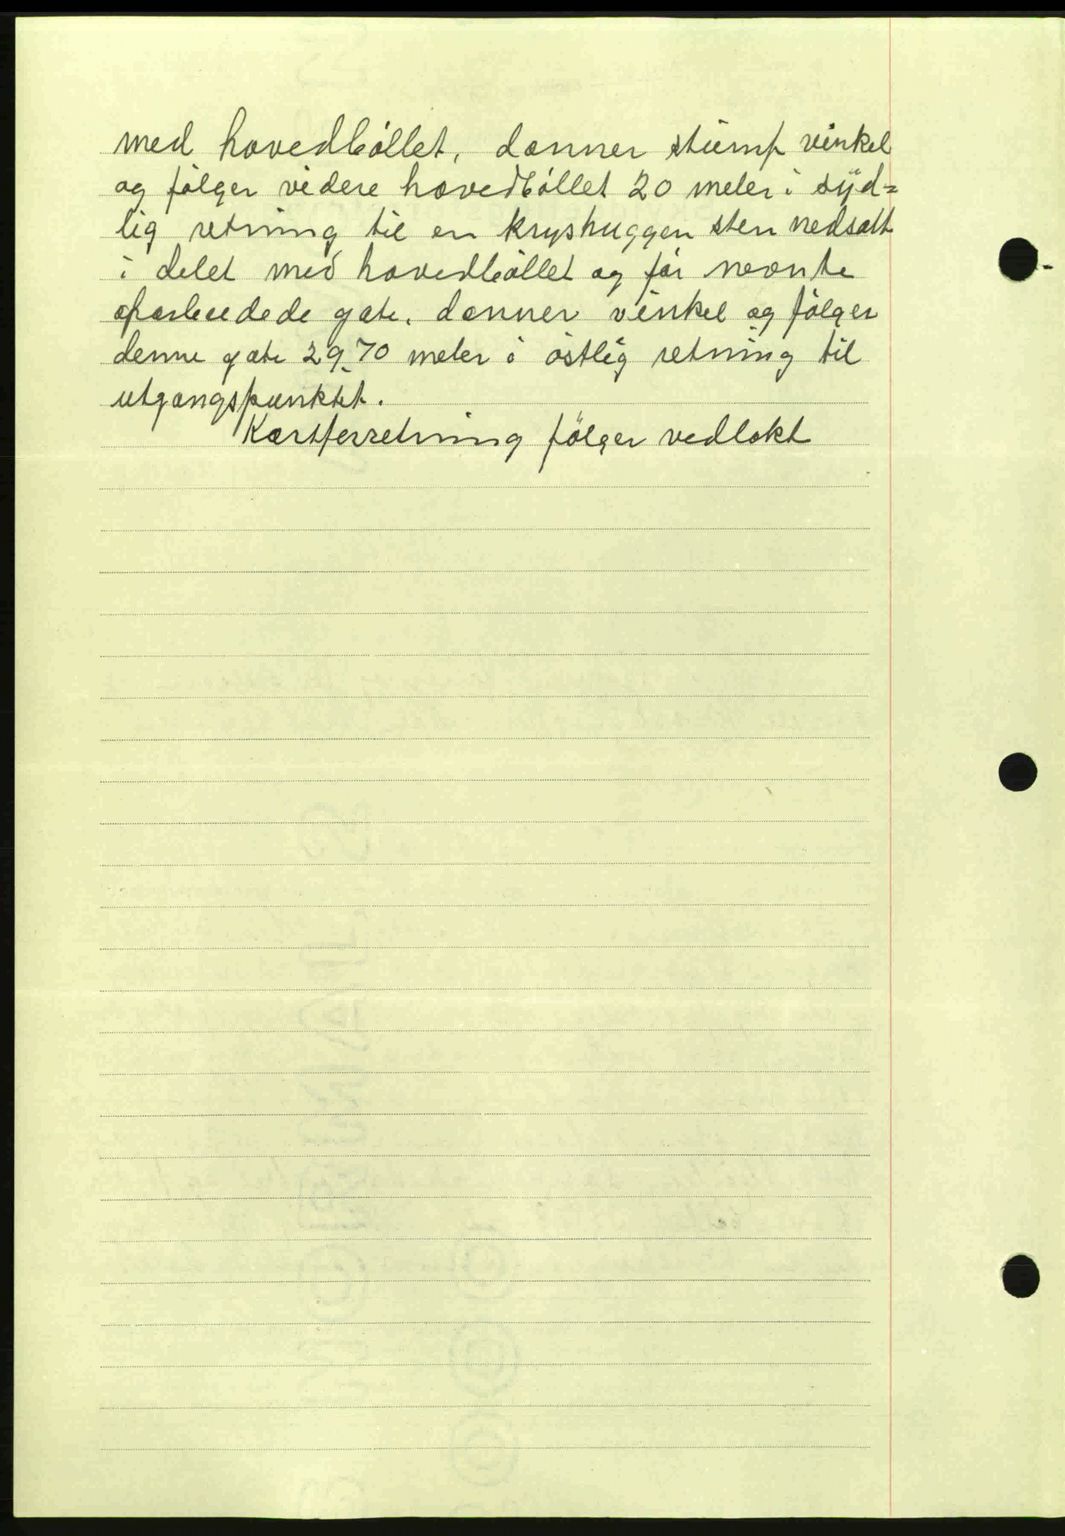 med hovedbøllet, danner stump vinkel
og følger videre hovedbøllet 20 meter i syd=
lig retning til en kryshuggen sten nedsatt
i delet med hovedbøllet og før nevnte
oparbeidede gate, danner vinkel og følger
denne gate 29,70 meter i østlig retning til
utgangspunktet.
Kartforretning følger vedlakt